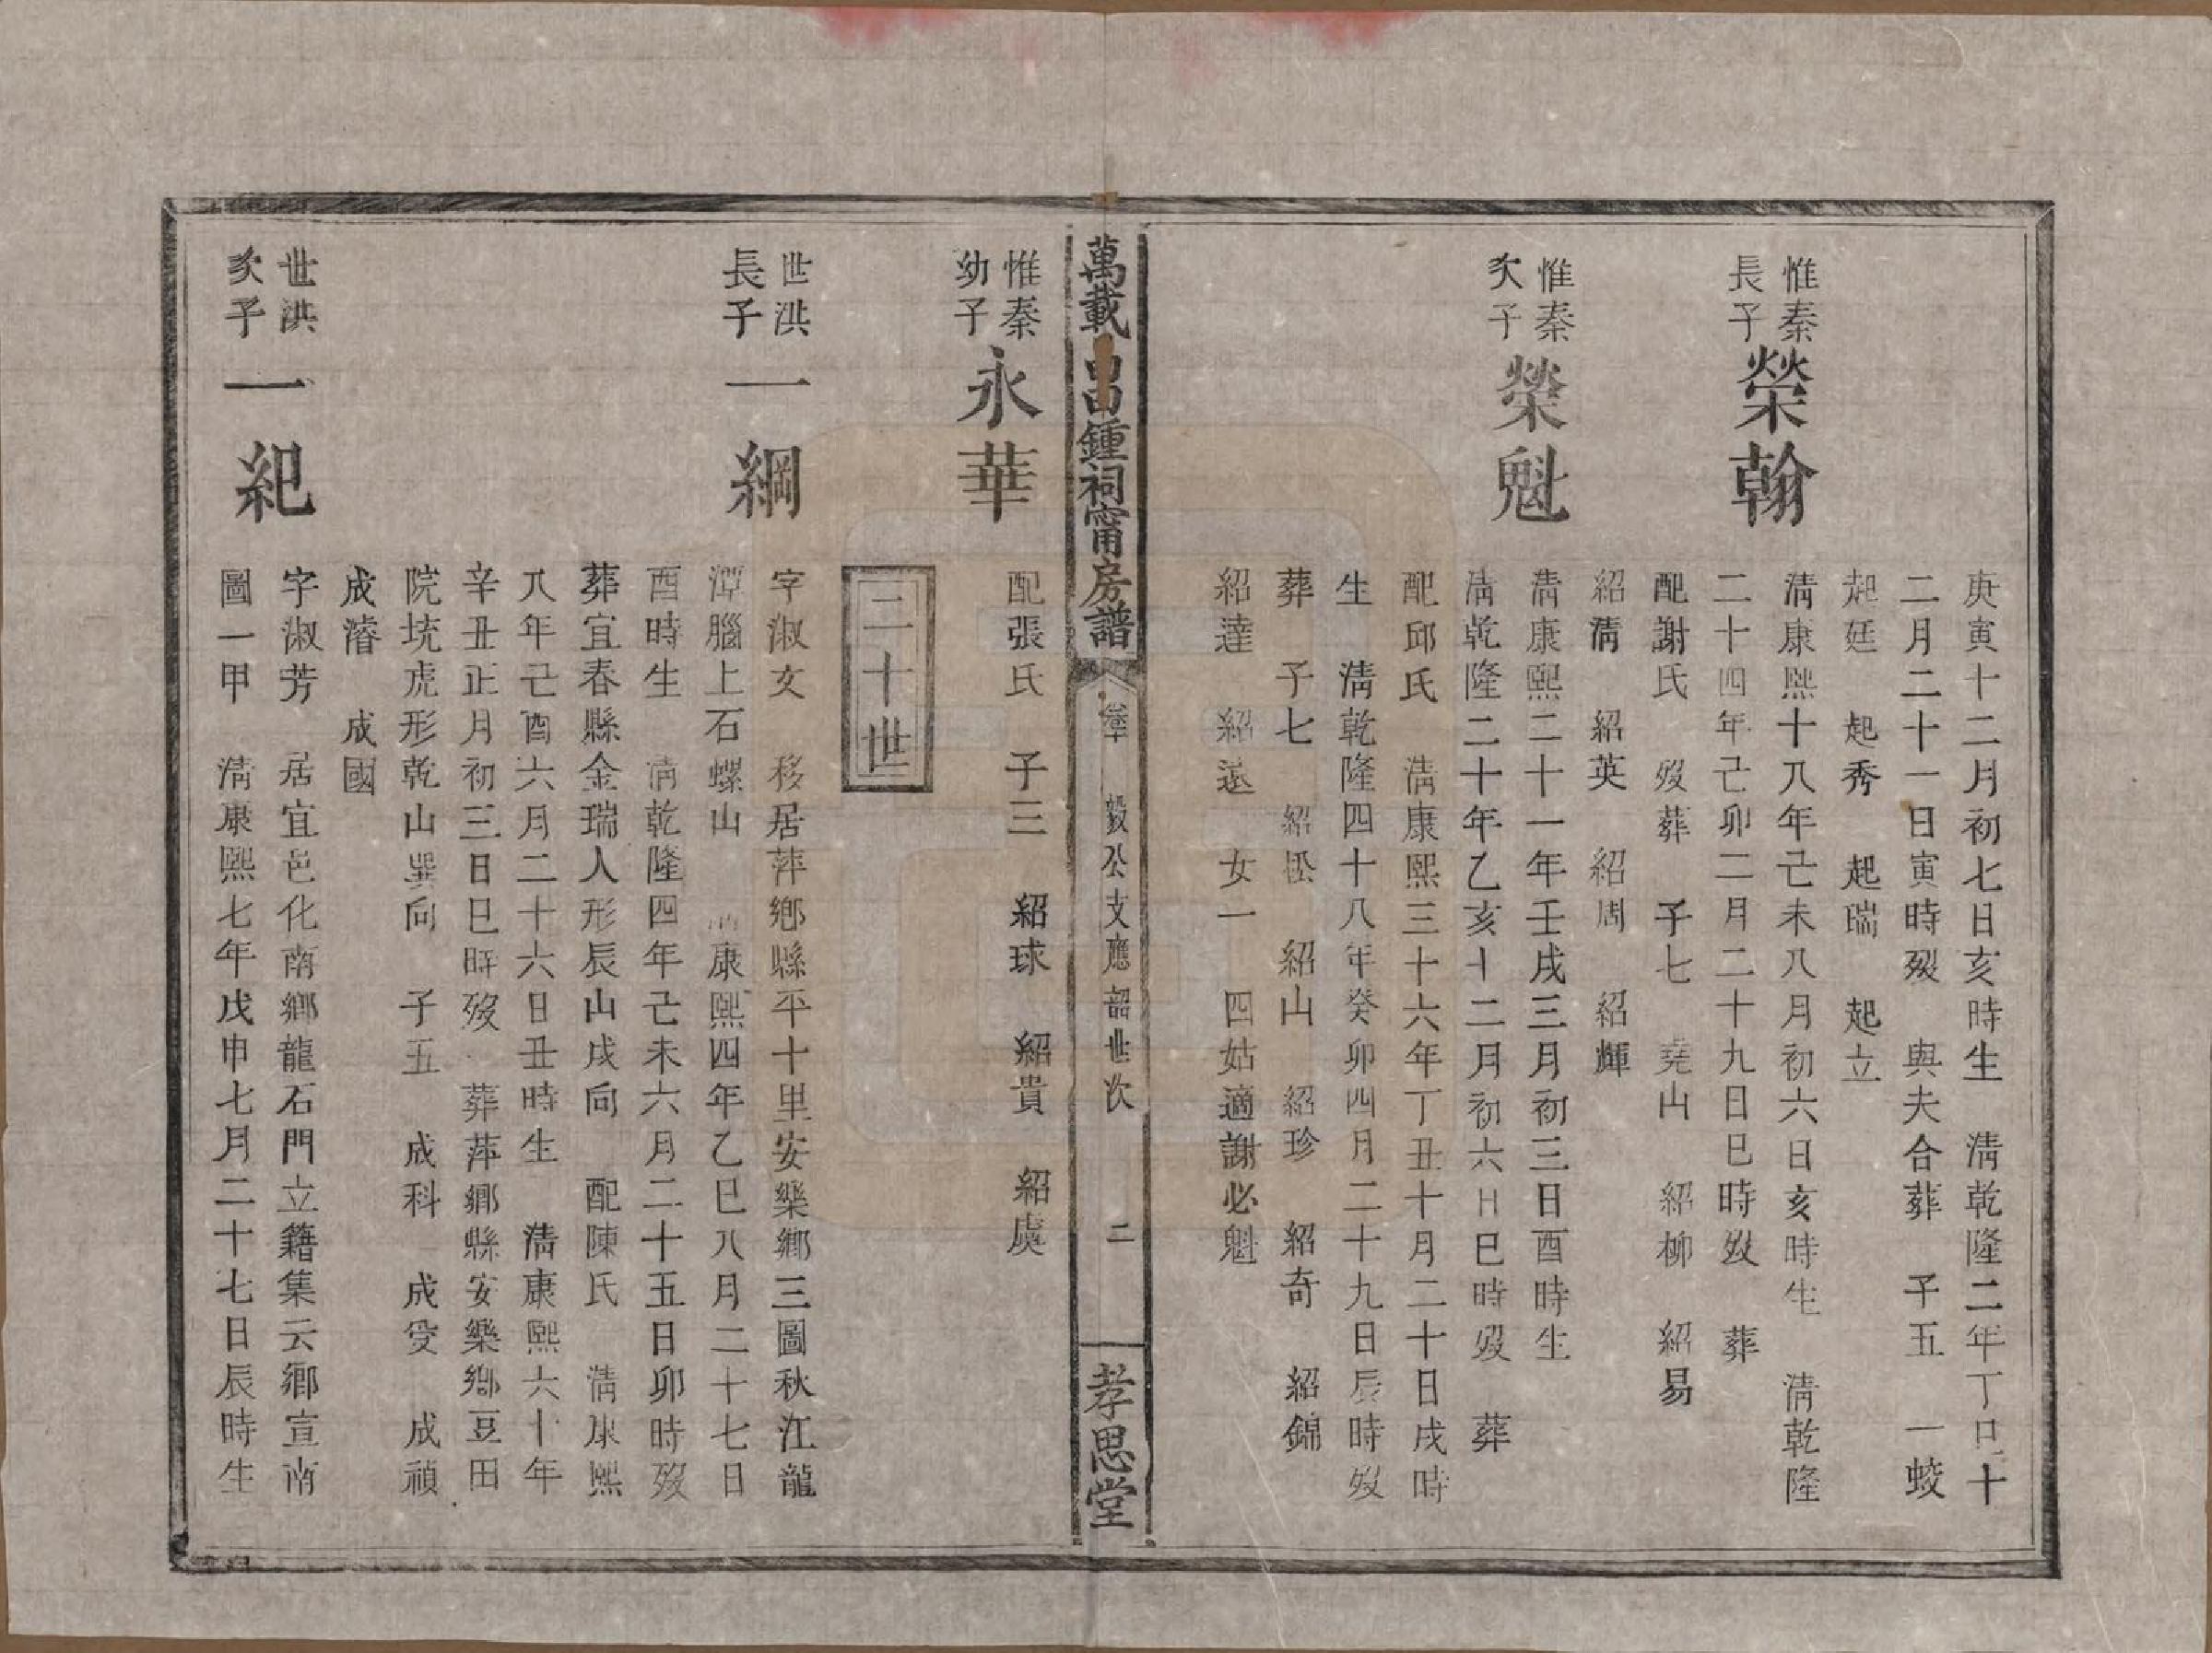 庚寅十二月初七日亥時生 淸乾隆二年丁巳十
二月二十一日寅時歿 與夫合葬 子五 一蛟
起廷 起秀 起瑞 起立
惟秦長子 榮翰 淸康熙十八年己未八月初六日亥時生 淸乾隆
二十四年己卯二月二十九日巳時歿 葬
配謝氏 歿葬 子七 堯山 紹柳 紹易
紹淸 紹英 紹周 紹輝
惟秦次子 榮魁 淸康熙二十一年壬戌三月初三日酉時生
淸乾隆二十年乙亥十二月初六日巳時歿 葬
配邱氏 淸康熙三十六年丁丑十月二十日戌時
生 淸乾隆四十八年癸卯四月二十九日辰時歿
葬 子七 紹松 紹山 紹珍 紹奇 紹錦
紹達 紹遠 女一 四姑適謝必魁
萬載 鍾祠甯房譜 毅公支應韶世次 二 孝思堂
惟秦幼子 永華 配張氏 子三 紹球 紹貴 紹虞
二十世
世洪長子 一綱 字淑女 移居萍鄕縣平十里安樂鄕三圖秋江龍
潭腦上石螺山 淸康熙四年乙巳八月二十七日
酉時生 淸乾隆四年己未六月二十五日卯時歿
葬宜春縣金瑞人形辰山戌向 配陳氏 淸康熙
八年己酉六月二十六日丑時生 淸康熙六十年
辛丑正月初三日巳時歿 葬萍鄕縣安樂鄕豆田
院坑虎形乾山巽向 子五 成科 成受 成禎
成濬 成國
世洪次子 一紀 字淑芳 居宜邑化南鄕龍石門立籍集云鄕宣南
圖一甲 淸康熙七年戊申七月二十七日辰時生